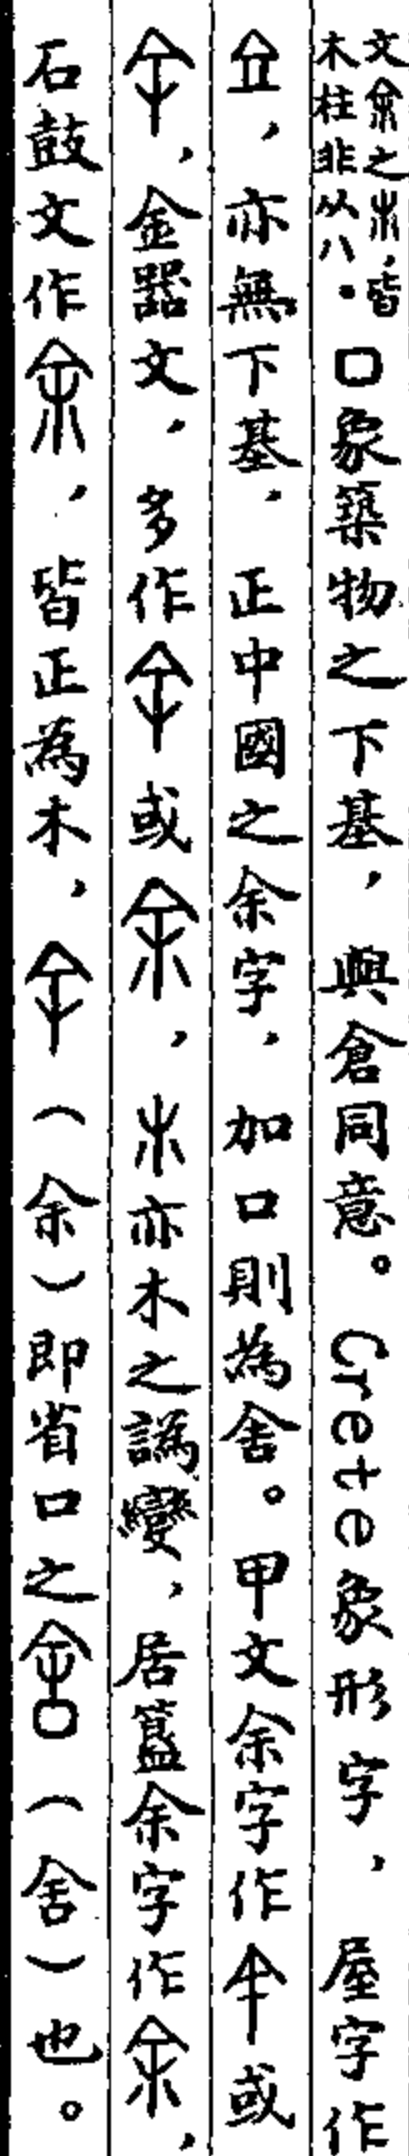 文余之木，皆
木柱非从八。
口象築物之下基，與倉同意。Crete象形字，屋字作
，亦無下基，正中國之余字，加口則為舍。甲文余字作或
，金器文，多作或，亦木之譌變，居簋余字作，
石鼓文作，皆正為木，（余）即省口之（舍）也。